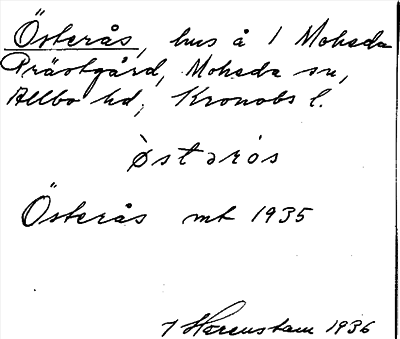 Österås, hus å 1 Moheda
Prästgård, Moheda sn,
Allbo hd, Kronobs l.
òstərós
Österås mt 1935
1936